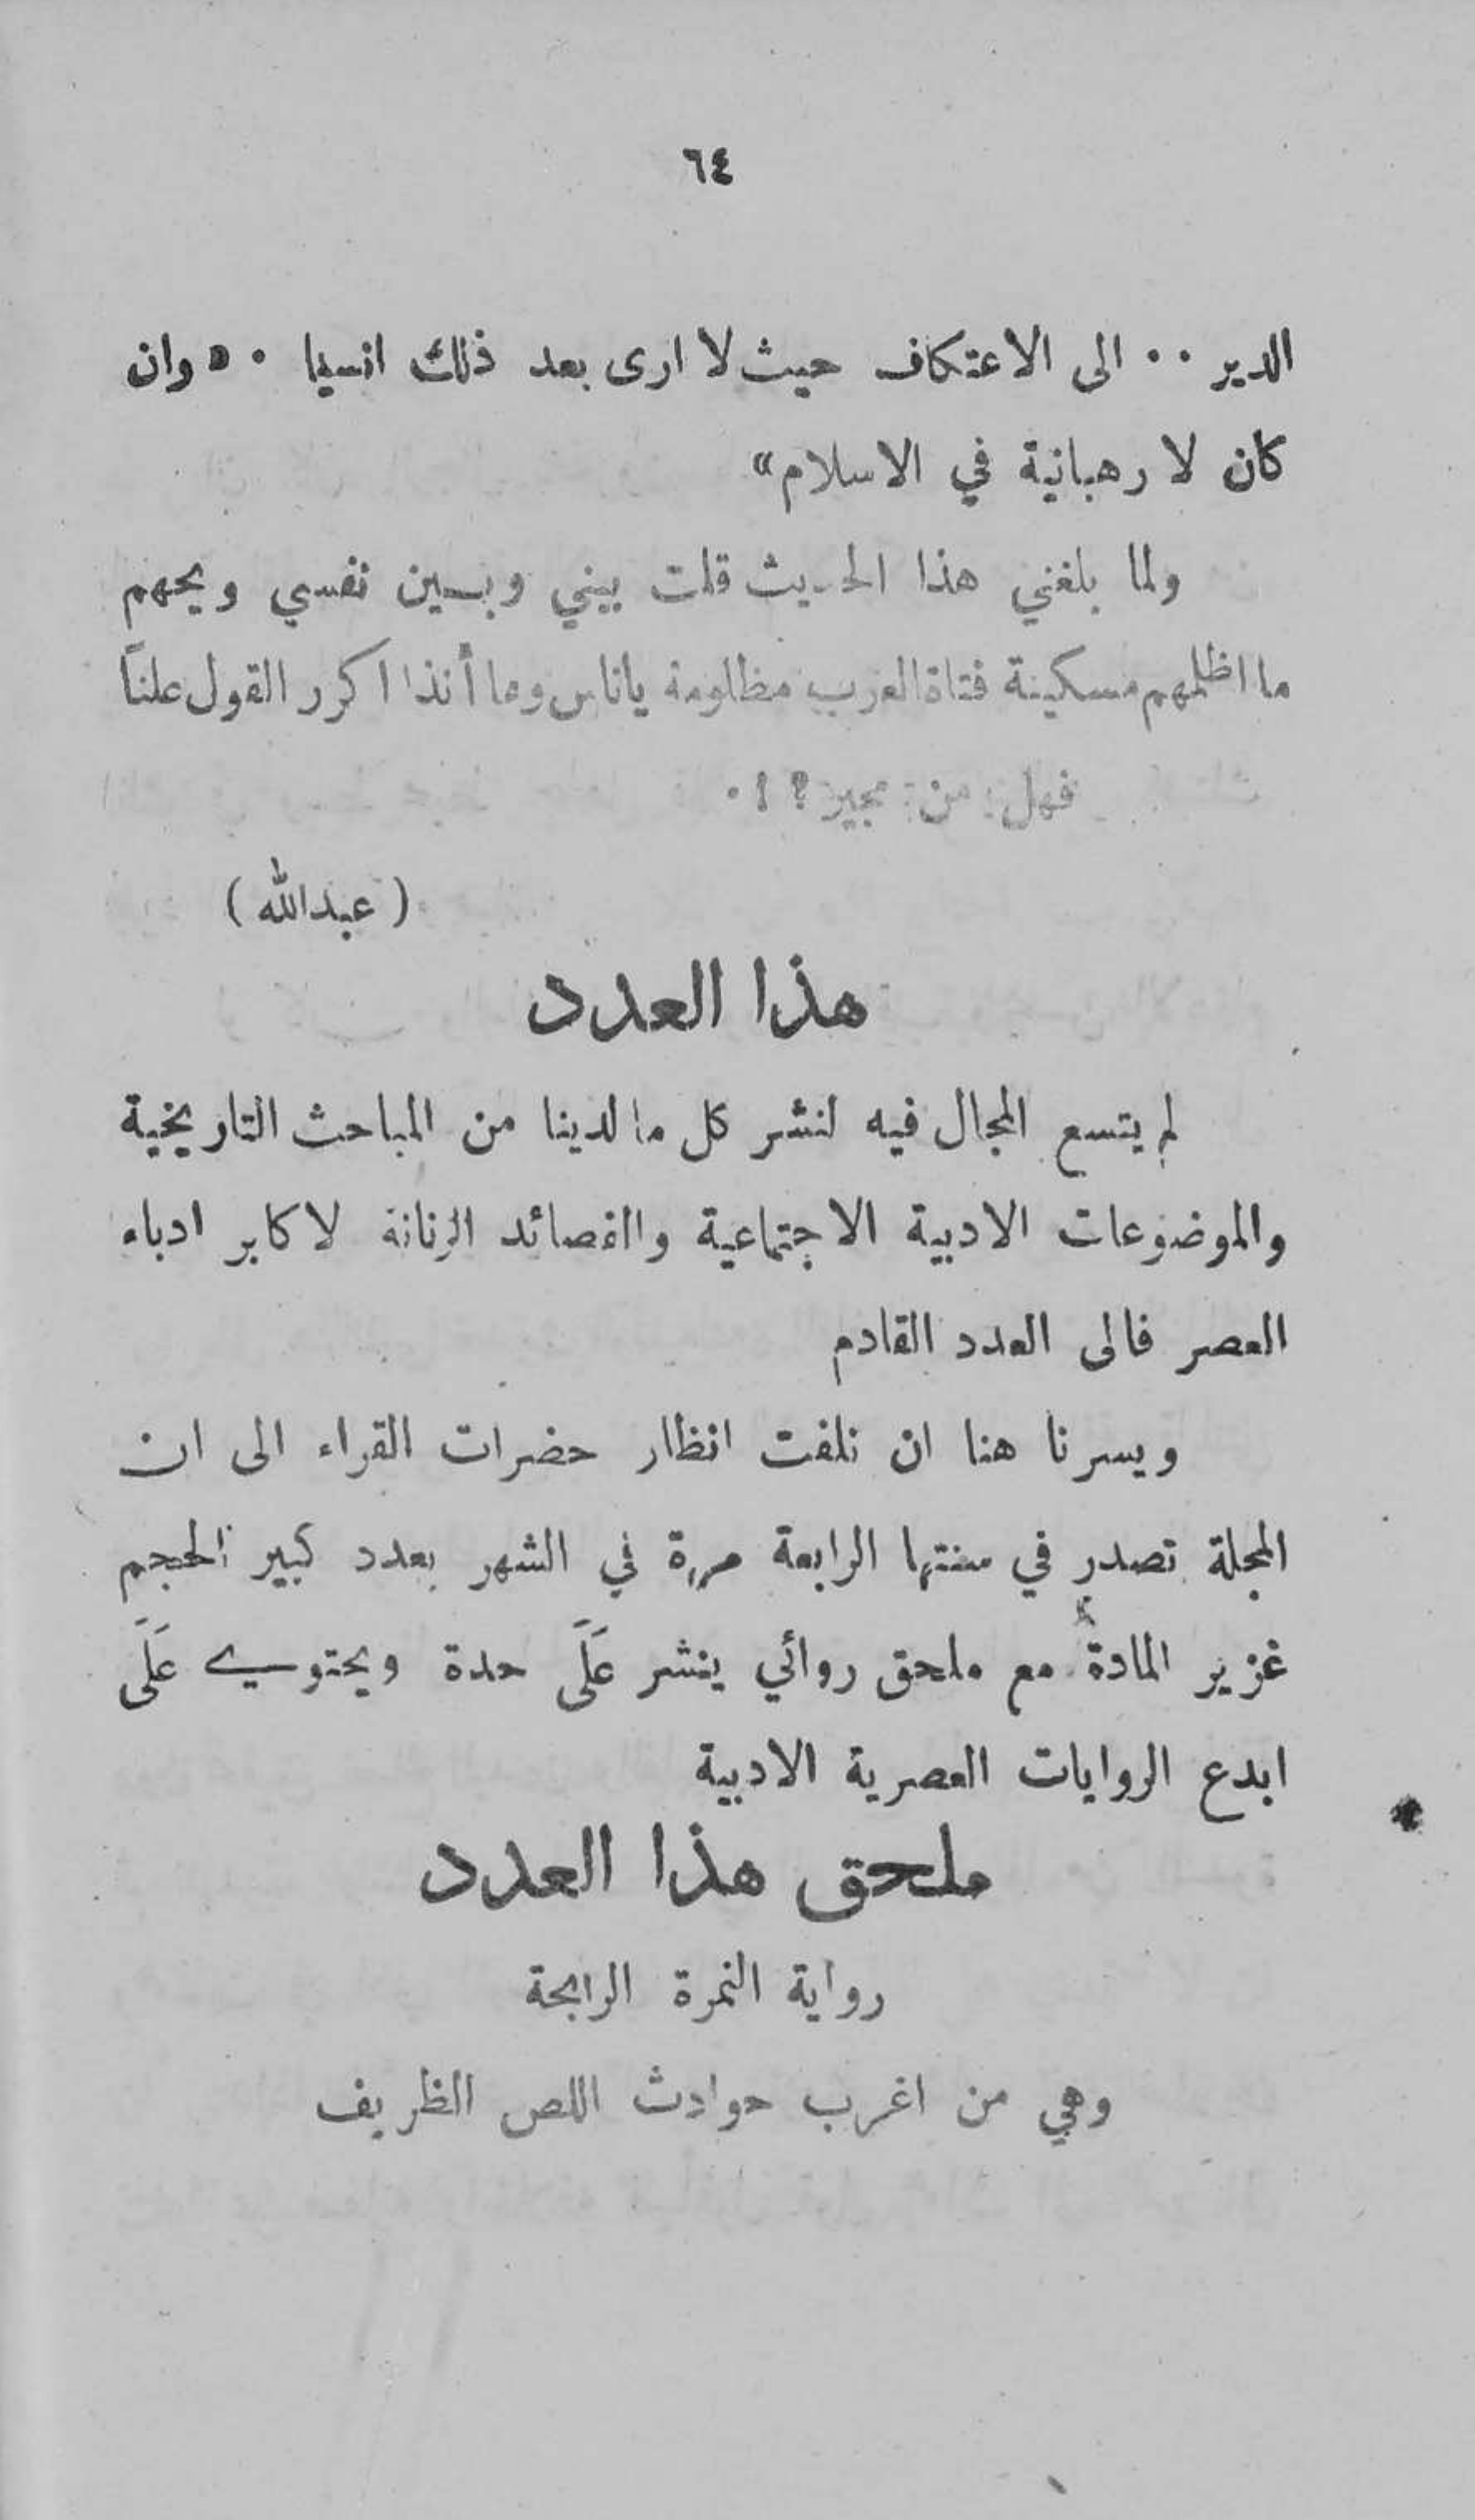 ٦٤
الدير ٠٠ الى الاعتكاف حيث لا ارى بعد ذلك انسيا ٠٠ وان
كان لا رهبانية في الاسلام»
ولما بلغني هذا الحديث قلت بيني وبين نفسي ويحهم
ما اظلمهم مسكينة فتاة العرب مظلومة ياناس وها أنذا اكرر القول علناً
فهل من مجير ؟ ! ٠
( عبدالله )
هذا العدد
لم يتسع المجال فيه لنشر كل ما لدينا من المباحث التاريخية
والموضوعات الادبية الاجتماعية والقصائد الرنانة لاكابر ادباء
العصر فالى العدد القادم
ويسرنا هنا ان نلفت انظار حضرات القراء الى ان
المجلة تصدر في سنتها الرابعة مرة في الشهر بعدد كبير الحجم
غزير المادة مع ملحق روائي ينشر عَلَى حدة ويحتوي عَلَى
ابدع الروايات العصرية الادبية
ملحق هذا العدد
رواية النمرة الرابحة
وهي من اغرب حوادث اللص الظريف